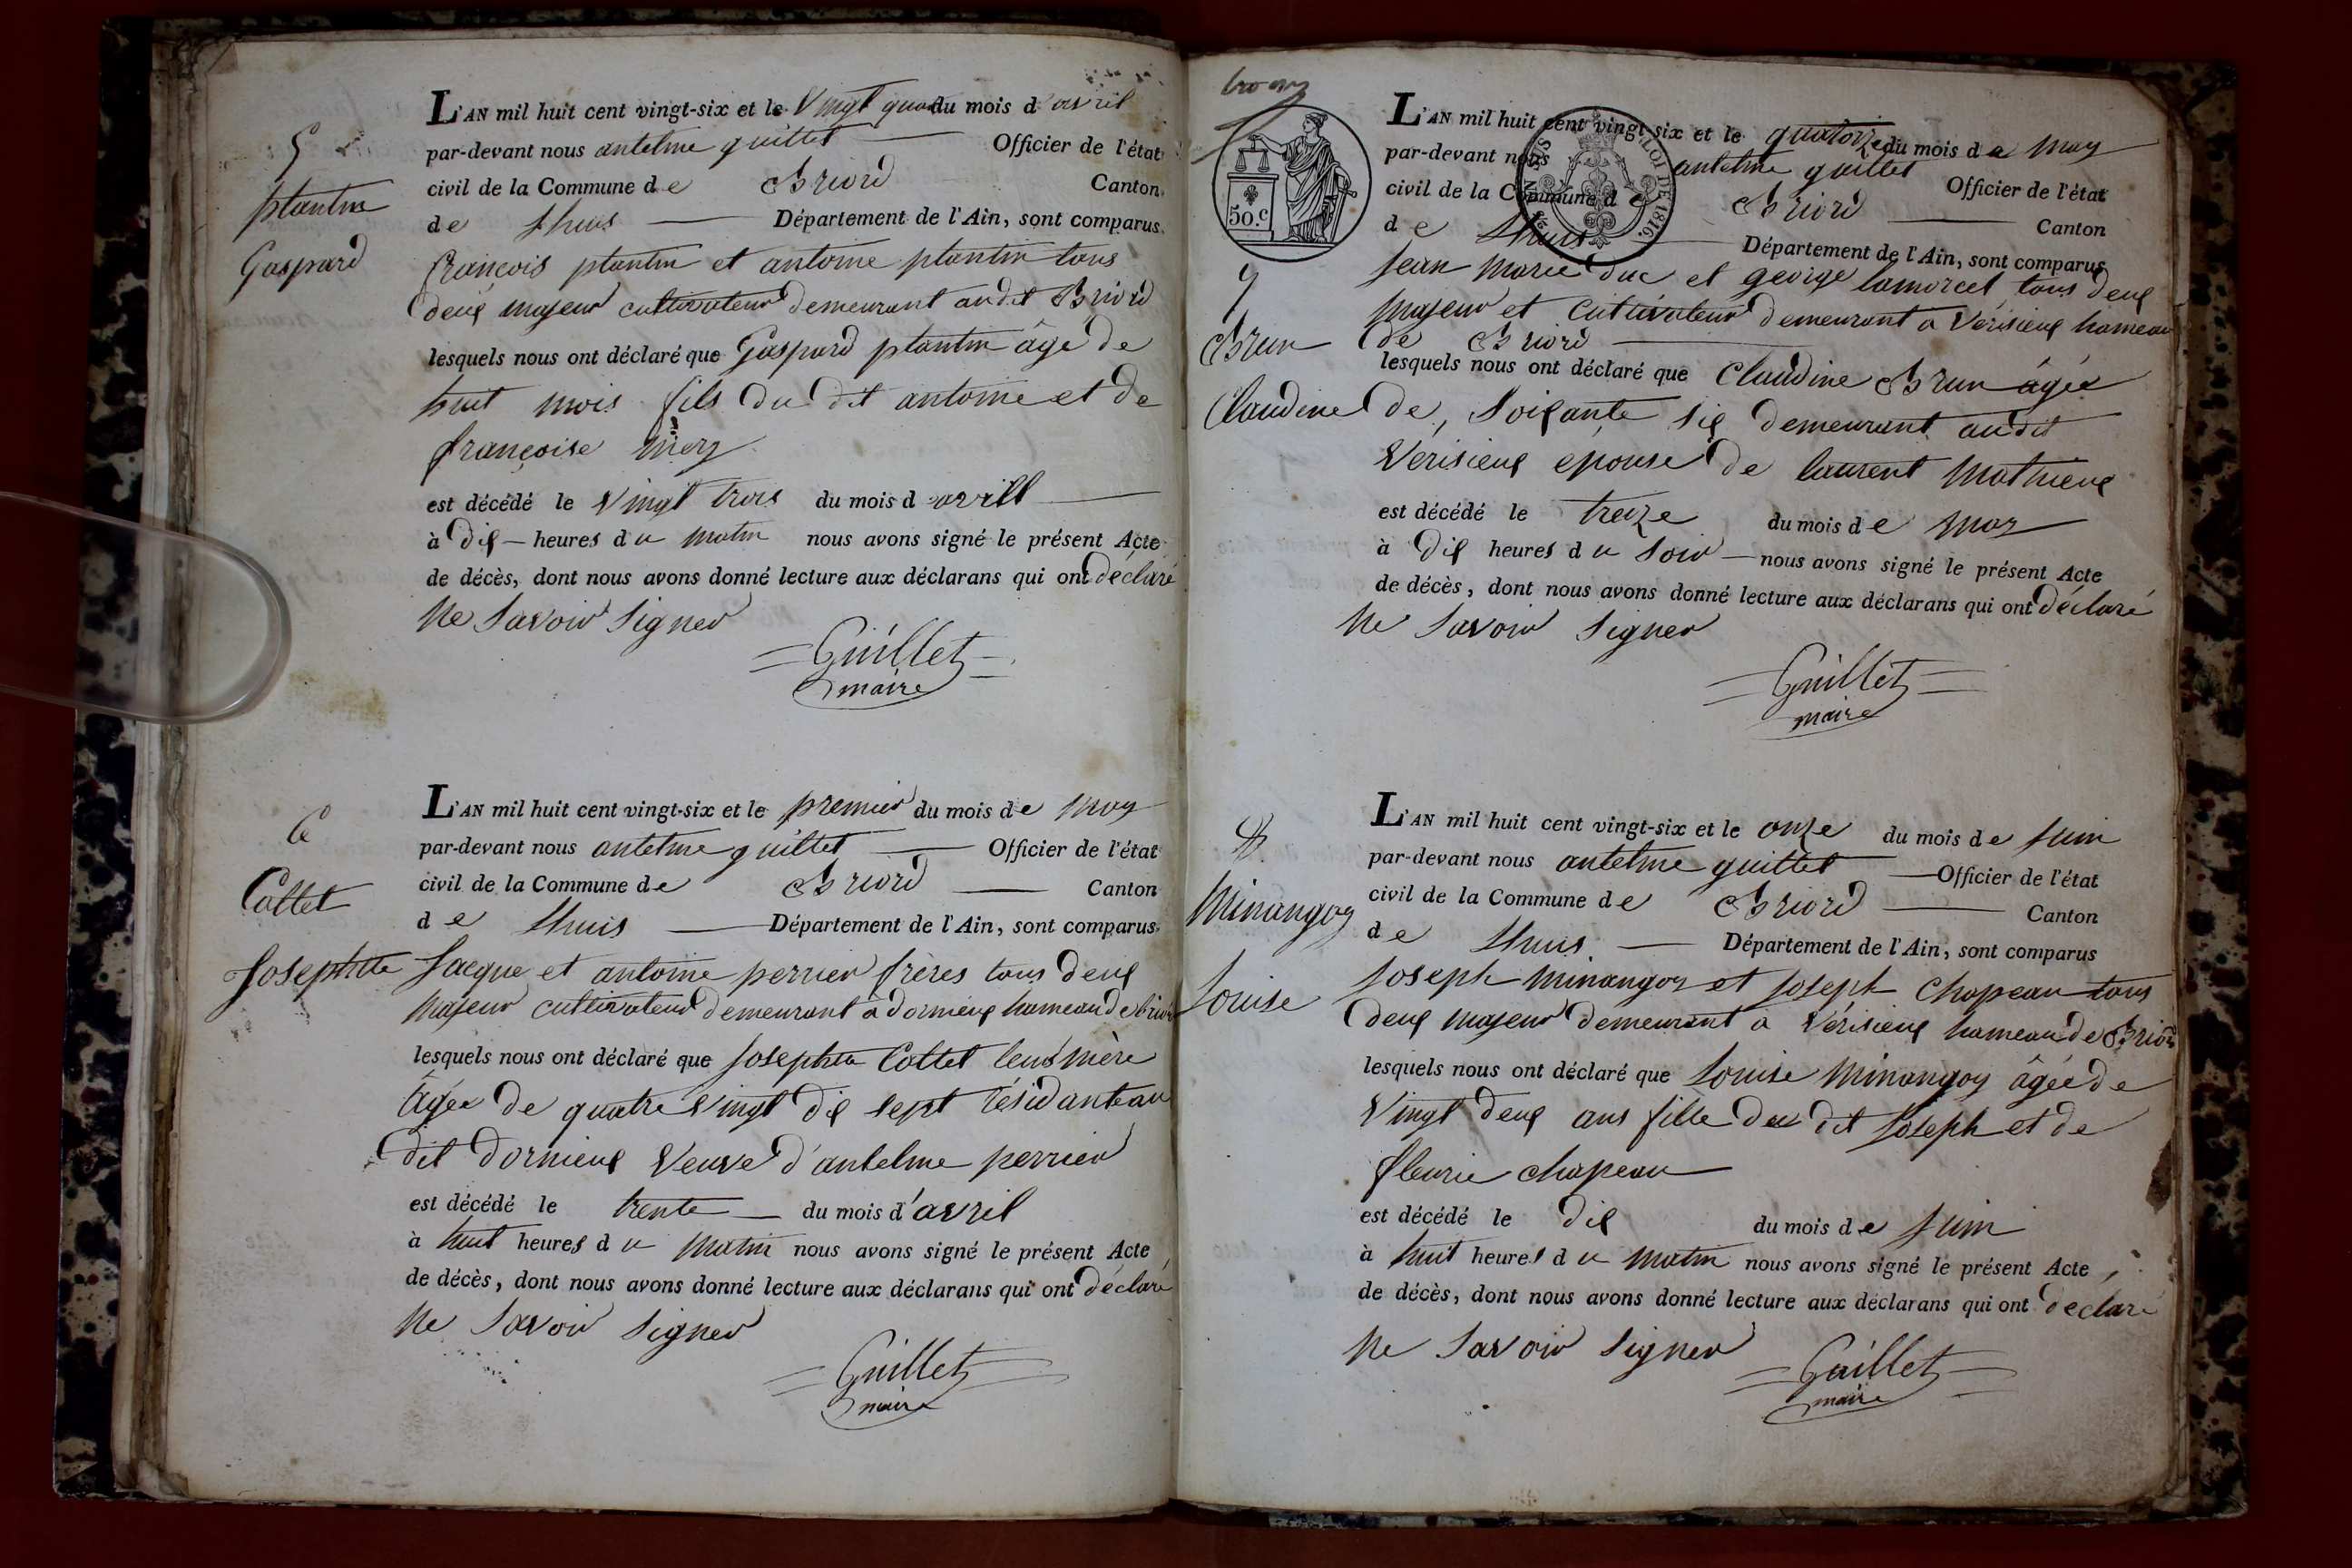 5
plantin
Gaspard
L'AN mil huit cent vingt-six et le Vingt quatre du mois d'avril
par-devant nous antelme guillet Officier de l'état
civil de la Commune de Briord Canton
de Lhuis Département de l'Ain, sont comparus
françois plantin et antoine plantin tous
deux majeur cultivateur demeurant audit Briord
lesquels nous ont déclaré que Gaspard plantin âgé de
huit mois fils du dit antoine et de
françoise
est décédé le Vingt trois du mois d avill
à dix heures du matin nous avons signé le présent Acte
de décès, dont nous avons donné lecture aux déclarans qui ont déclaré
ne Savoir Signer
Guillet
maire
6
Collet
Josephte
L'AN mil huit cent vingt-six et le premier du mois de may
par-devant nous antelme guillet Officier de l'état
civil de la Commune de Briord Canton
de Lhuis Département de l'Ain, sont comparus
Jacque et antoine perrier frères tous deux
majeur cultivateur demeurant a dornieux hameau de briord
lesquels nous ont déclaré que Josephte Collet leur mère
âgée de quatre Vingt dix sept résidante au
dit Dornieux Veuve d'antelme perrier
est décédé le trente du mois d'avril
à huit heures du matin nous avons signé le présent Acte
de décès, dont nous avons donné lecture aux déclarans qui ont déclaré
ne Savoir Signer
Guillet
maire
50.c
LOI DE 1816.
7
Brun
Claudine
L'AN mil huit cent vingt-six et le quatorze du mois de may
par-devant nous antelme guillet Officier de l'état
civil de la Commune de Briord Canton
de Lhuis Département de l'Ain, sont comparus
Jean marie duc et george lamorcel tous deux
majeur et cultivateur demeurant a Verisieux hameau
de Briord
lesquels nous ont déclaré que Claudine Brun âgée
de, Soixante six demeurant audit
Verisieux epouse de laurent Mathieux
est décédé le treize du mois de may
à dix heures du Soir nous avons signé le présent Acte
de décès, dont nous avons donné lecture aux déclarans qui ont déclaré
ne Savoir Signer
Guillet
maire
8
Minangoy
Louise
L'AN mil huit cent vingt-six et le onze du mois de Juin
par-devant nous antelme guillet Officier de l'état
civil de la Commune de Briord Canton
de Lhuis Département de l'Ain, sont comparus
Joseph minangoy et Joseph Chapeau tous
deux majeur demeurant a Vérisieux hameau de Briord
lesquels nous ont déclaré que Louise Minangoy âgée de
Vingt deux ans fille du dit Joseph et de
fleurie chapeau
est décédé le dix du mois de Juin
à huit heures du matin nous avons signé le présent Acte
de décès, dont nous avons donné lecture aux déclarans qui ont déclaré
ne Savoir Signer
Guillet
maire